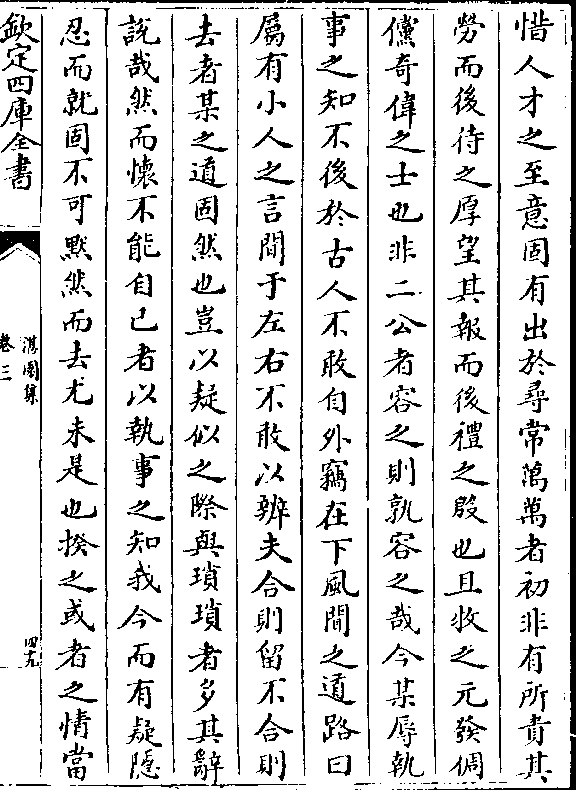 惜人才之至意固有出於尋常萬萬者初非有所責其
勞而後待之厚望其報而後禮之殷也且牧之元發倜
儻奇偉之士也非二公者容之則孰容之哉今某辱執
事之知不後於古人不敢自外竊在下風聞之道路曰
屬有小人之言間于左右不敢以辨夫合則留不合則
去者某之道固然也豈以疑似之際與瑣瑣者多其辭
說哉然而懷不能自已者以執事之知我今而有疑隱
忍而就固不可黙然而去尤未是也揆之或者之情當
欽定四庫全書
卷三